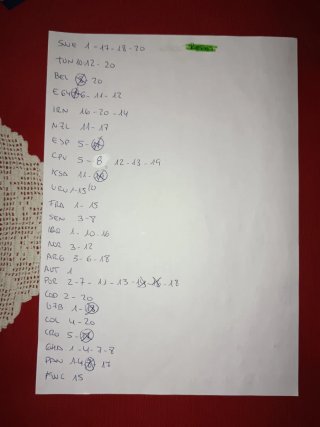 SWE 1-17-18-20
TUN 10 12-20
BEL 20
EGY 6-11-12
IRN 16-20-14
NZL 11-17
ESP 5-
CPV 5-8 12-13-19
KSA 11-
URU 1-15
FRA 1-15
SEN 3-8
IRQ 1-10-16
NOR 3-12
ARG 3-6-18
AUT 1
POR 2-7-11-13- 18
COD 2-20
UZB 1-
COL 4-20
CRO 5-
GHA 1-4-7-8
PAN 1-4 17
FWC 15